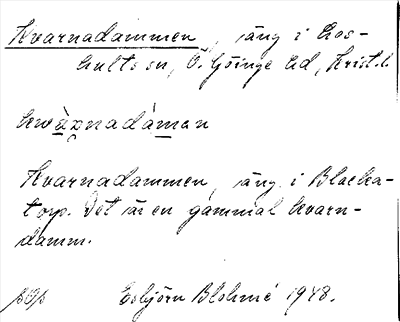 Kvarnadammen, äng i Los-
hults sn, Ö. Göinge hd, Krist. l.
kwàrnadàman
Kvarnadammen, äng i Blacka-
torp. Det är en gammal kvarn-
damm.
Esbjörn Blohmé 1948.